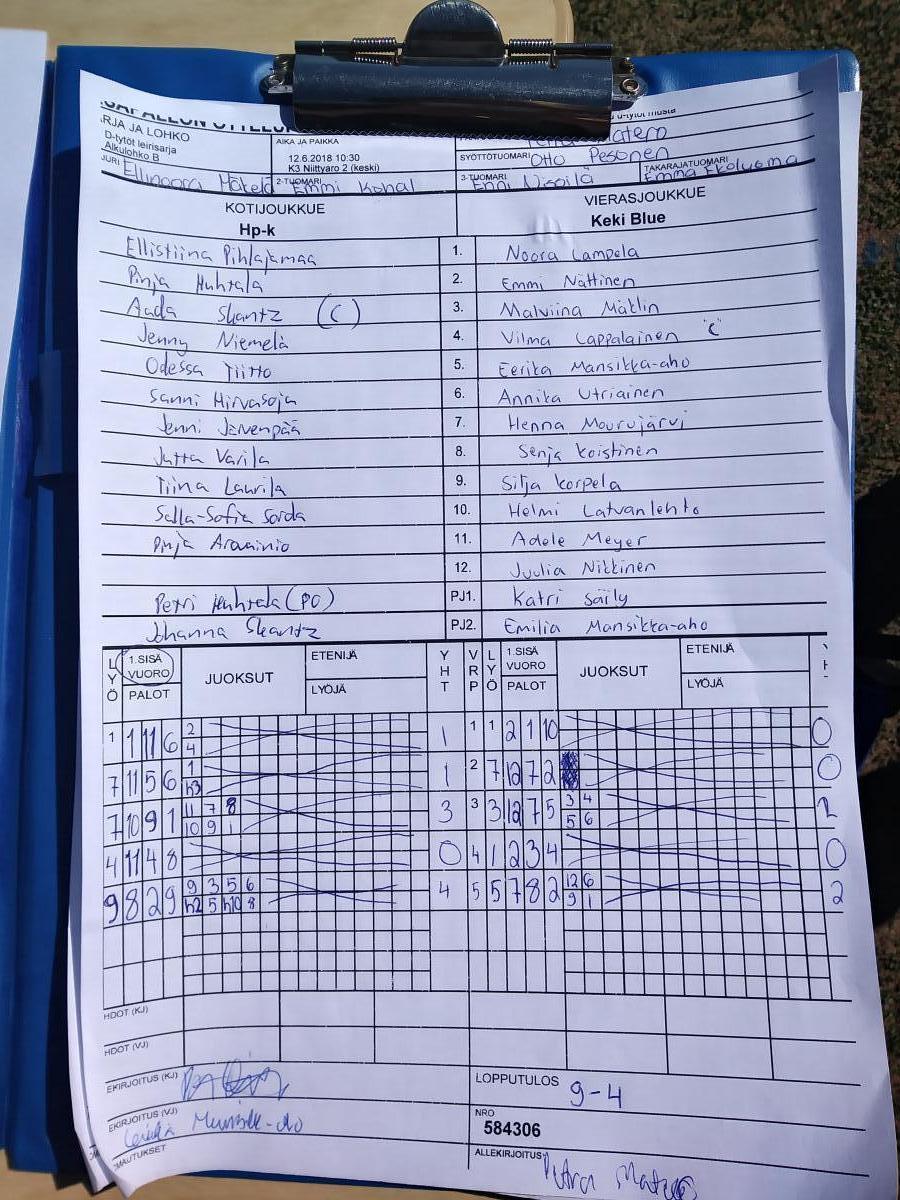 RJA JA LOHKO
D-tytöt leirisarja
Alkulohko B
AIKA JA PAIKKA
12.6.2018 10:30
K3 Niittyaro 2 (keski)
SYÖTTÖTUOMARI Otto Pesonen
JURI Ellinoora Mäkelä 2-TUOMARI Emmi 3-TUOMARI TAKARAJATUOMARI Emma
KOTIJOUKKUE VIERASJOUKKUE
Hp-k Keki Blue
Ellistiina Pihlajamaa 1. Noora Lampela
Pinja Huhtala 2. Emmi Nättinen
Aada Skantz (C) 3. Malviina Mätlin
Jenny Niemelä 4. Vilma Lappalainen "C"
Odessa Tiitto 5. Eerika Mansikka-aho
Sanni Hirvasoja 6. Annika Utriainen
Jenni Järvenpää 7. Henna Mourujärvi
Jutta Varila 8. Senja Koistinen
Tiina Laurila 9. Silja Korpela
Salla-Sofia Sarda 10. Helmi Latvanlehto
Pinja 11. Adele Meyer
12. Juulia Nikkinen
Petri Huhtala (PO) PJ1. Katri Säily
Johanna Skantz PJ2. Emilia Mansikka-aho
LYÖ 1.SISÄ VUORO PALOT JUOKSUT ETENIJÄ LYÖJÄ YHT VRP LYÖ 1.SISÄ VUORO PALOT JUOKSUT ETENIJÄ LYÖJÄ
1 1 11 6 2 1 1 1 2 1 10 0
4
7 11 5 6 1 1 2 7 12 7 2 0
h3
7 10 9 1 11 7 8 3 3 3 12 7 5 3 4 2
10 9 1 5 6
4 11 4 8 0 4 1 2 3 4 0
9 8 2 9 9 3 5 6 4 5 5 7 8 2 12 6 2
h2 5 h10 8 9 1
HDOT (KJ)
HDOT (VJ)
EKIRJOITUS (KJ) LOPPUTULOS 9-4
EKIRJOITUS (VJ) NRO
584306
OMAUTUKSET ALLEKIRJOITUS